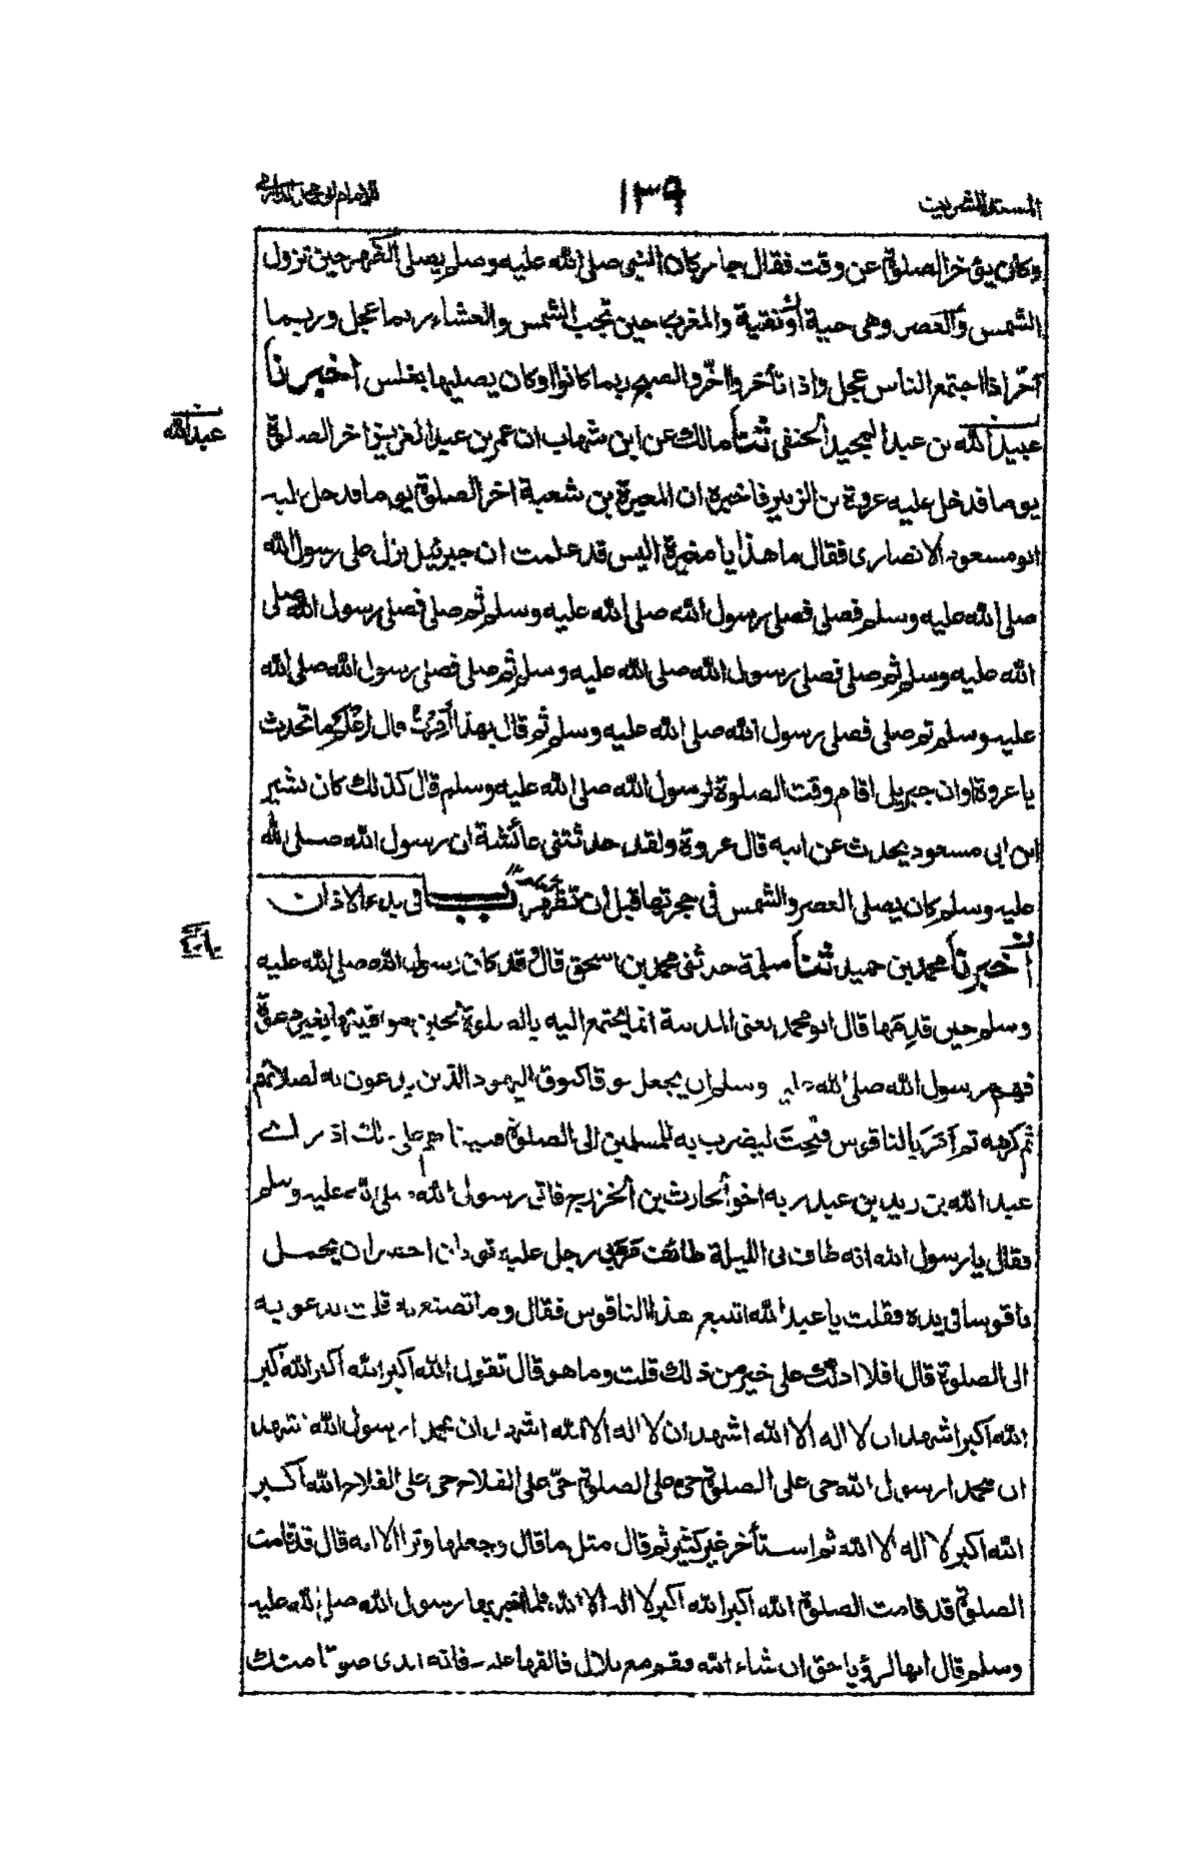 المسند الشريف ١٣٩ للامام ابو محمد الدارمي
وكان يؤخر الصلوة عن وقت فقال جابر كان النبي صلى الله عليه وسلم يصلى الظهر حين تزول
الشمس والعصر وهى حية أو نقية والمغرب حين تجب الشمس والعشاء ربما عجل وربما
أخّر اذا اجتمع الناس عجل واذا تأخروا اخّر والصبح ربما كانوا او كان يصليها بغلس اخبرنا
عبيد الله بن عبد المجيد الحنفى ثنا مالك عن ابن شهاب ان عمر بن عبد العزيز اخر الصلوة
عبد الله
يوما فدخل عليه عروة بن الزبير فاخبره ان المغيرة بن شعبة اخر الصلوة يوما فدخل عليه
ابو مسعود الانصارى فقال ما هذا يا مغيرة اليس قد علمت ان جبرئيل نزل على رسول الله
صلى الله عليه وسلم فصلى فصلى رسول الله صلى الله عليه وسلم ثم صلى فصلى رسول الله صلى
الله عليه وسلم ثم صلى فصلى رسول الله صلى الله عليه وسلم ثم صلى فصلى رسول الله صلى الله
عليه وسلم ثم صلى فصلى رسول الله صلى الله عليه وسلم ثم قال بهذا أُمِرْتُ قال اعلم ما تحدث
يا عروة او ان جبريل اقام وقت الصلوة لرسول الله صلى الله عليه وسلم قال كذلك كان بشير
ابن ابى مسعود يحدث عن ابيه قال عروة ولقد حدثتنى عائشة ان رسول الله صلى الله
عليه وسلم كان يصلى العصر والشمس فى حجرتها قبل ان تظهر باب فى بدء الاذان
اخبرنا محمد بن حميد ثنا سلمة حدثنى محمد بن اسحق قال قد كان رسول الله صلى الله عليه
وسلم حين قدمها قال ابو محمد يعنى المدينة انما يجتمع اليه بالصلوة لحين مواقيتها بغير دعوة
فهم رسول الله صلى الله عليه وسلم ان يجعل بوقا كبوق اليهود الذين يدعون به لصلاتهم
ثم كرهه ثم أمر بالناقوس فنحت ليضرب به للمسلمين الى الصلوة فبينا هم على ذلك اذ راى
عبد الله بن زيد بن عبد ربه اخو الحارث بن الخزرج فاتى رسول الله صلى الله عليه وسلم
فقال يا رسول الله انه طاف بى الليلة طائف مَرَّ بى رجل عليه ثوبان اخضران يحمل
ناقوسا فى يده فقلت يا عبد الله اتبيع هذا الناقوس فقال وما تصنع به قلت ندعو به
الى الصلوة قال افلا ادلك على خير من ذلك قلت وما هو قال تقول الله اكبر الله اكبر الله اكبر
الله اكبر اشهد ان لا اله الا الله اشهد ان لا اله الا الله اشهد ان محمدا رسول الله اشهد
ان محمدا رسول الله حى على الصلوة حى على الصلوة حىّ على الفلاح حى على الفلاح الله اكبر
الله اكبر لا اله الا الله ثم استأخر غير كثير ثم قال مثل ما قال وجعلها وترا الا انه قال قد قامت
الصلوة قد قامت الصلوة الله اكبر الله اكبر لا اله الا الله فلما اخبر بها رسول الله صلى الله عليه
وسلم قال انها لرؤيا حق ان شاء الله فقم مع بلال فالقها عليه فانه اندى صوتا منك